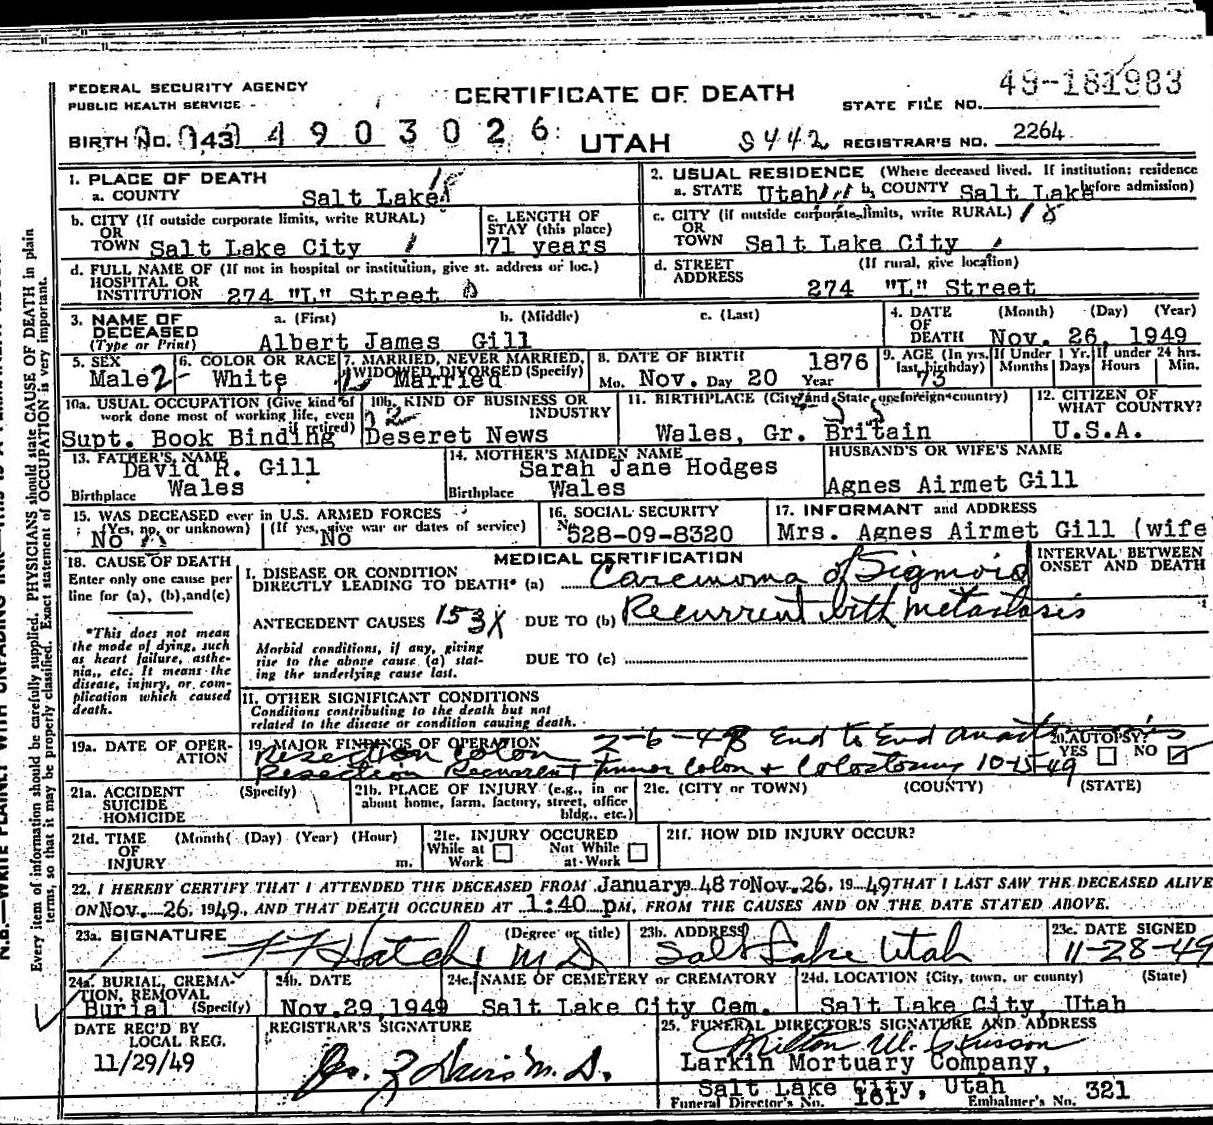 FEDERAL SECURITY AGENCY
PUBLIC HEALTH SERVICE
CERTIFICATE OF DEATH
STATE FILE NO. 49-181983
BIRTH No. 143 4903026 UTAH 8442 REGISTRAR'S NO. 2264
1. PLACE OF DEATH
a. COUNTY Salt Lake 18
2. USUAL RESIDENCE (Where deceased lived. If institution: residence before admission)
a. STATE Utah b. COUNTY Salt Lake
b. CITY (If outside corporate limits, write RURAL) OR TOWN Salt Lake City
c. LENGTH OF STAY (this place) 71 years
c. CITY (if outside corporate limits, write RURAL) OR TOWN Salt Lake City 18
d. FULL NAME OF (If not in hospital or institution, give st. address or loc.) HOSPITAL OR INSTITUTION 274 "L" Street
d. STREET ADDRESS (If rural, give location) 274 "L" Street
3. NAME OF DECEASED (Type or Print) a. (First) b. (Middle) c. (Last)
Albert James Gill
4. DATE OF DEATH (Month) (Day) (Year) Nov. 26, 1949
5. SEX Male 2
6. COLOR OR RACE White
7. MARRIED, NEVER MARRIED, WIDOWED DIVORSED (Specify) Married
8. DATE OF BIRTH Mo. Nov. Day 20 Year 1876
9. AGE (In yrs. last birthday) 73 If Under 1 Yr. Months Days If under 24 hrs. Hours Min.
10a. USUAL OCCUPATION (Give kind of work done most of working life, even if retired) Supt. Book Binding
10b. KIND OF BUSINESS OR INDUSTRY Deseret News
11. BIRTHPLACE (City and State or foreign country) Wales, Gr. Britain
12. CITIZEN OF WHAT COUNTRY? U.S.A.
13. FATHER'S NAME David R. Gill
Birthplace Wales
14. MOTHER'S MAIDEN NAME Sarah Jane Hodges
Birthplace Wales
HUSBAND'S OR WIFE'S NAME Agnes Airmet Gill
15. WAS DECEASED ever in U.S. ARMED FORCES
(Yes, no, or unknown) No (If yes, give war or dates of service) No
16. SOCIAL SECURITY No. 528-09-8320
17. INFORMANT and ADDRESS
Mrs. Agnes Airmet Gill (wife
18. CAUSE OF DEATH
Enter only one cause per line for (a), (b), and (c)
*This does not mean the mode of dying, such as heart failure, asthenia, etc. It means the disease, injury, or complication which caused death.
MEDICAL CERTIFICATION
INTERVAL BETWEEN ONSET AND DEATH
I. DISEASE OR CONDITION DIRECTLY LEADING TO DEATH* (a) Carcinoma of Sigmoid
ANTECEDENT CAUSES 153X DUE TO (b) Recurrent with metastasis
Morbid conditions, if any, giving rise to the above cause (a) stating the underlying cause last.
DUE TO (c)
11. OTHER SIGNIFICANT CONDITIONS
Conditions contributing to the death but not related to the disease or condition causing death.
19a. DATE OF OPERATION
19. MAJOR FINDINGS OF OPERATION 2-6-48 End to End
Resection Colon
Resection Recurrent Tumor Colon + Colostomy 10-15-49
20. AUTOPSY? YES NO
21a. ACCIDENT SUICIDE HOMICIDE (Specify)
21b. PLACE OF INJURY (e.g., in or about home, farm, factory, street, office bldg., etc.)
21c. (CITY OR TOWN) (COUNTY) (STATE)
21d. TIME OF INJURY (Month) (Day) (Year) (Hour) m.
21e. INJURY OCCURED While at Work Not While at Work
21f. HOW DID INJURY OCCUR?
22. I HEREBY CERTIFY THAT I ATTENDED THE DECEASED FROM January 19 48 TO Nov. 26, 19 49 THAT I LAST SAW THE DECEASED ALIVE
ON Nov. 26, 1949, AND THAT DEATH OCCURED AT 1:40 pM, FROM THE CAUSES AND ON THE DATE STATED ABOVE.
23a. SIGNATURE (Degree or title) Hatch M D
23b. ADDRESS Salt Lake Utah
23c. DATE SIGNED 11-28-49
24a. BURIAL, CREMATION, REMOVAL (Specify) Burial
24b. DATE Nov. 29, 1949
24c. NAME OF CEMETERY or CREMATORY Salt Lake City Cem.
24d. LOCATION (City, town, or county) (State) Salt Lake City, Utah
DATE REC'D BY LOCAL REG. 11/29/49
REGISTRAR'S SIGNATURE
25. FUNERAL DIRECTOR'S SIGNATURE AND ADDRESS
Larkin Mortuary Company,
Salt Lake City, Utah
Funeral Director's No. 161 Embalmer's No. 321
Every item of information should be carefully supplied. PHYSICIANS should state CAUSE OF DEATH in plain
terms, so that it may be properly classified. Exact statement of OCCUPATION is very important.